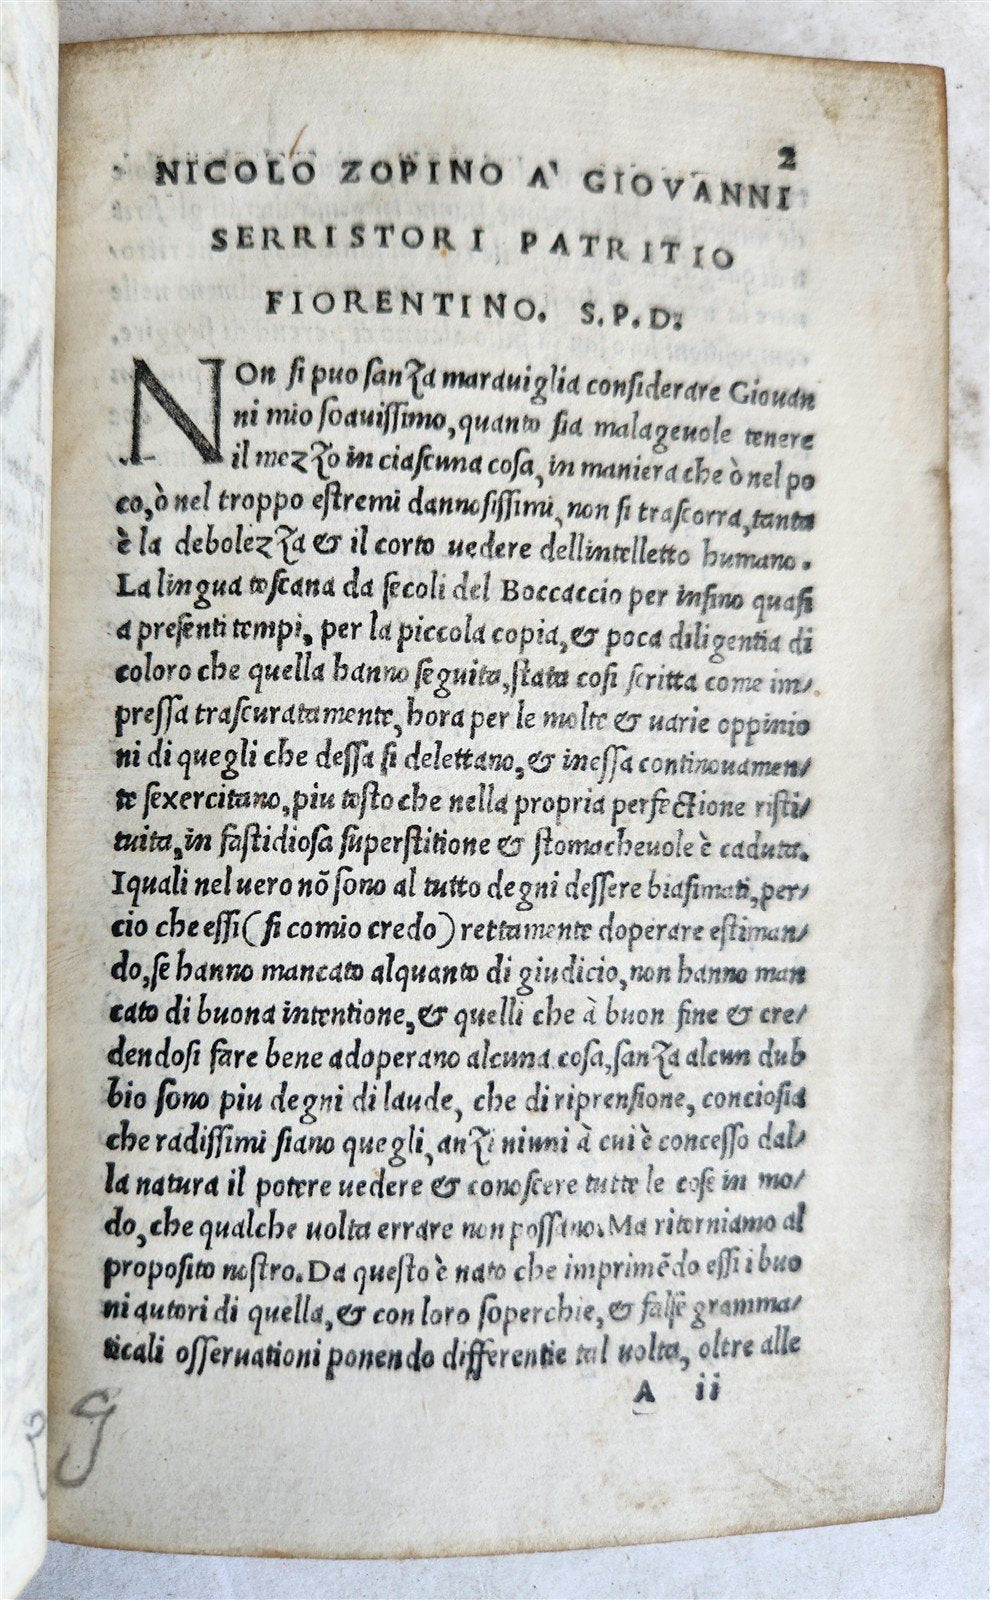 2
NICOLO ZOPINO A' GIOVANNI
SERRISTORI PATRITIO
FIORENTINO. S.P.D.
NOn si puo sanza marauiglia considerare Giouan
ni mio soauissimo, quanto sia malageuole tenere
il mezzo in ciascuna cosa, in maniera che ò nel po
co, ò nel troppo estremi dannosissimi, non si trascorra, tanta
è la debolezza & il corto uedere dellintelletto humano.
La lingua toscana da secoli del Boccaccio per insino quasi
a presenti tempi, per la piccola copia, & poca diligentia di
coloro che quella hanno seguita, stata cosi scritta come im/
pressa trascuratamente, hora per le molte & uarie oppinio
ni di quegli che dessa si delettano, & inessa continouamen/
te sexercitano, piu tosto che nella propria perfectione risti/
tuita, in fastidiosa superstitione & stomacheuole è caduta.
Iquali nel uero nõ sono al tutto degni dessere biasimati, per/
cio che essi ( si comio credo ) rettamente doperare estiman/
do, se hanno mancato alquanto di giudicio, non hanno man
cato di buona intentione, & quelli che à buon fine & cre/
dendosi fare bene adoperano alcuna cosa, sanza alcun dub
bio sono piu degni di laude, che di riprensione, conciosia
che radissimi siano quegli, anzi niuni à cui è concesso dal/
la natura il potere uedere & conoscere tutte le cose in mo/
do, che qualche uolta errare non possano. Ma ritorniamo al
proposito nostro. Da questo è nato che imprimẽdo essi i buo
ni autori di quella, & con loro soperchie, & false gramma/
ticali osseruationi ponendo differentie tal uolta, oltre alle
A ii